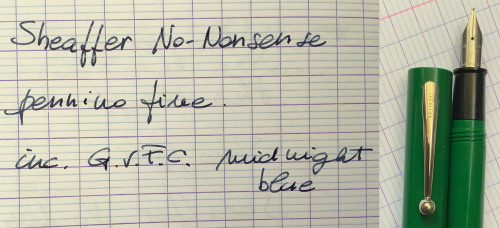 Sheaffer No-Nonsense
pennino fine.
inc. G.v.F.C. midnight
blue